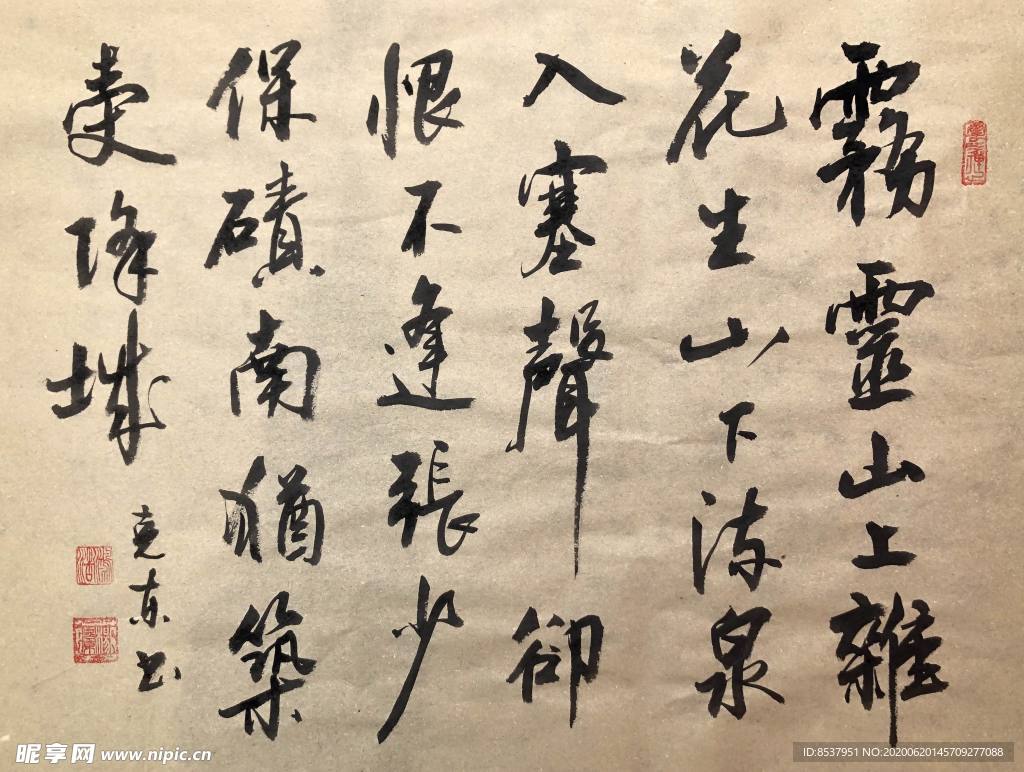 霧靈山上雜
花生山下流泉
入塞聲卻
恨不逢張少
保磧南猶築
受降城
克东书
昵享网 www.nipic.cn
ID:8537951 NO:20200620145709277088